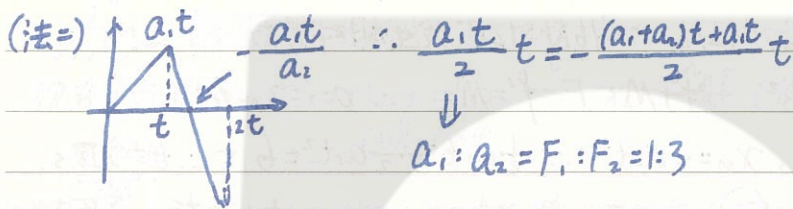 (法二) a₁t
- a₁t/a₂ ∴ a₁t/2 t = - (a₁+a₂)t+a₁t/2 t
t 2t ⇓
a₁:a₂=F₁:F₂=1:3